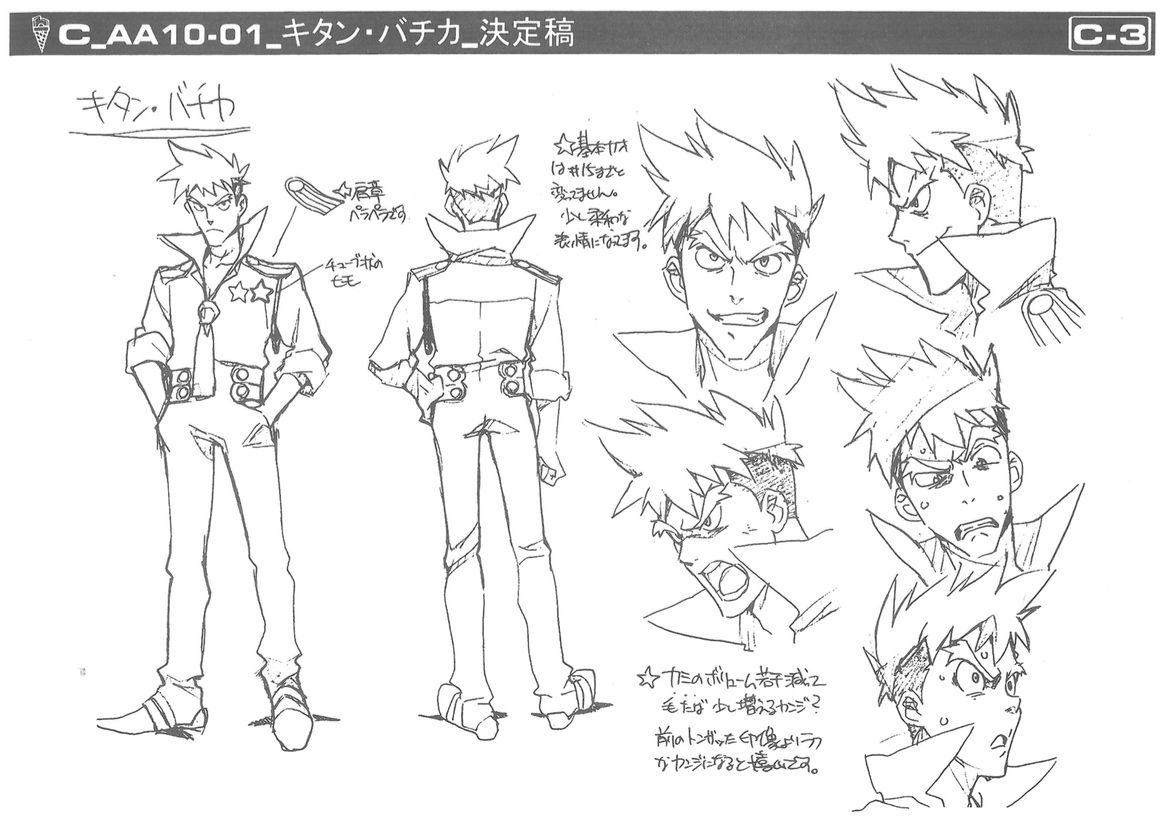 C_AA10-01_キタン・バチカ_決定稿
C-3
キタン・バチカ
☆肩章
ペラペラです
チューブ状の
ヒモ
☆基本カオ
は#15までと
変ってません。
少し柔和な
表情になってます。
☆カミのボリューム若干減って
毛たば少し増えるカンジ?
前のトンガッた印象よりラフ
なカンジになると嬉しいです。